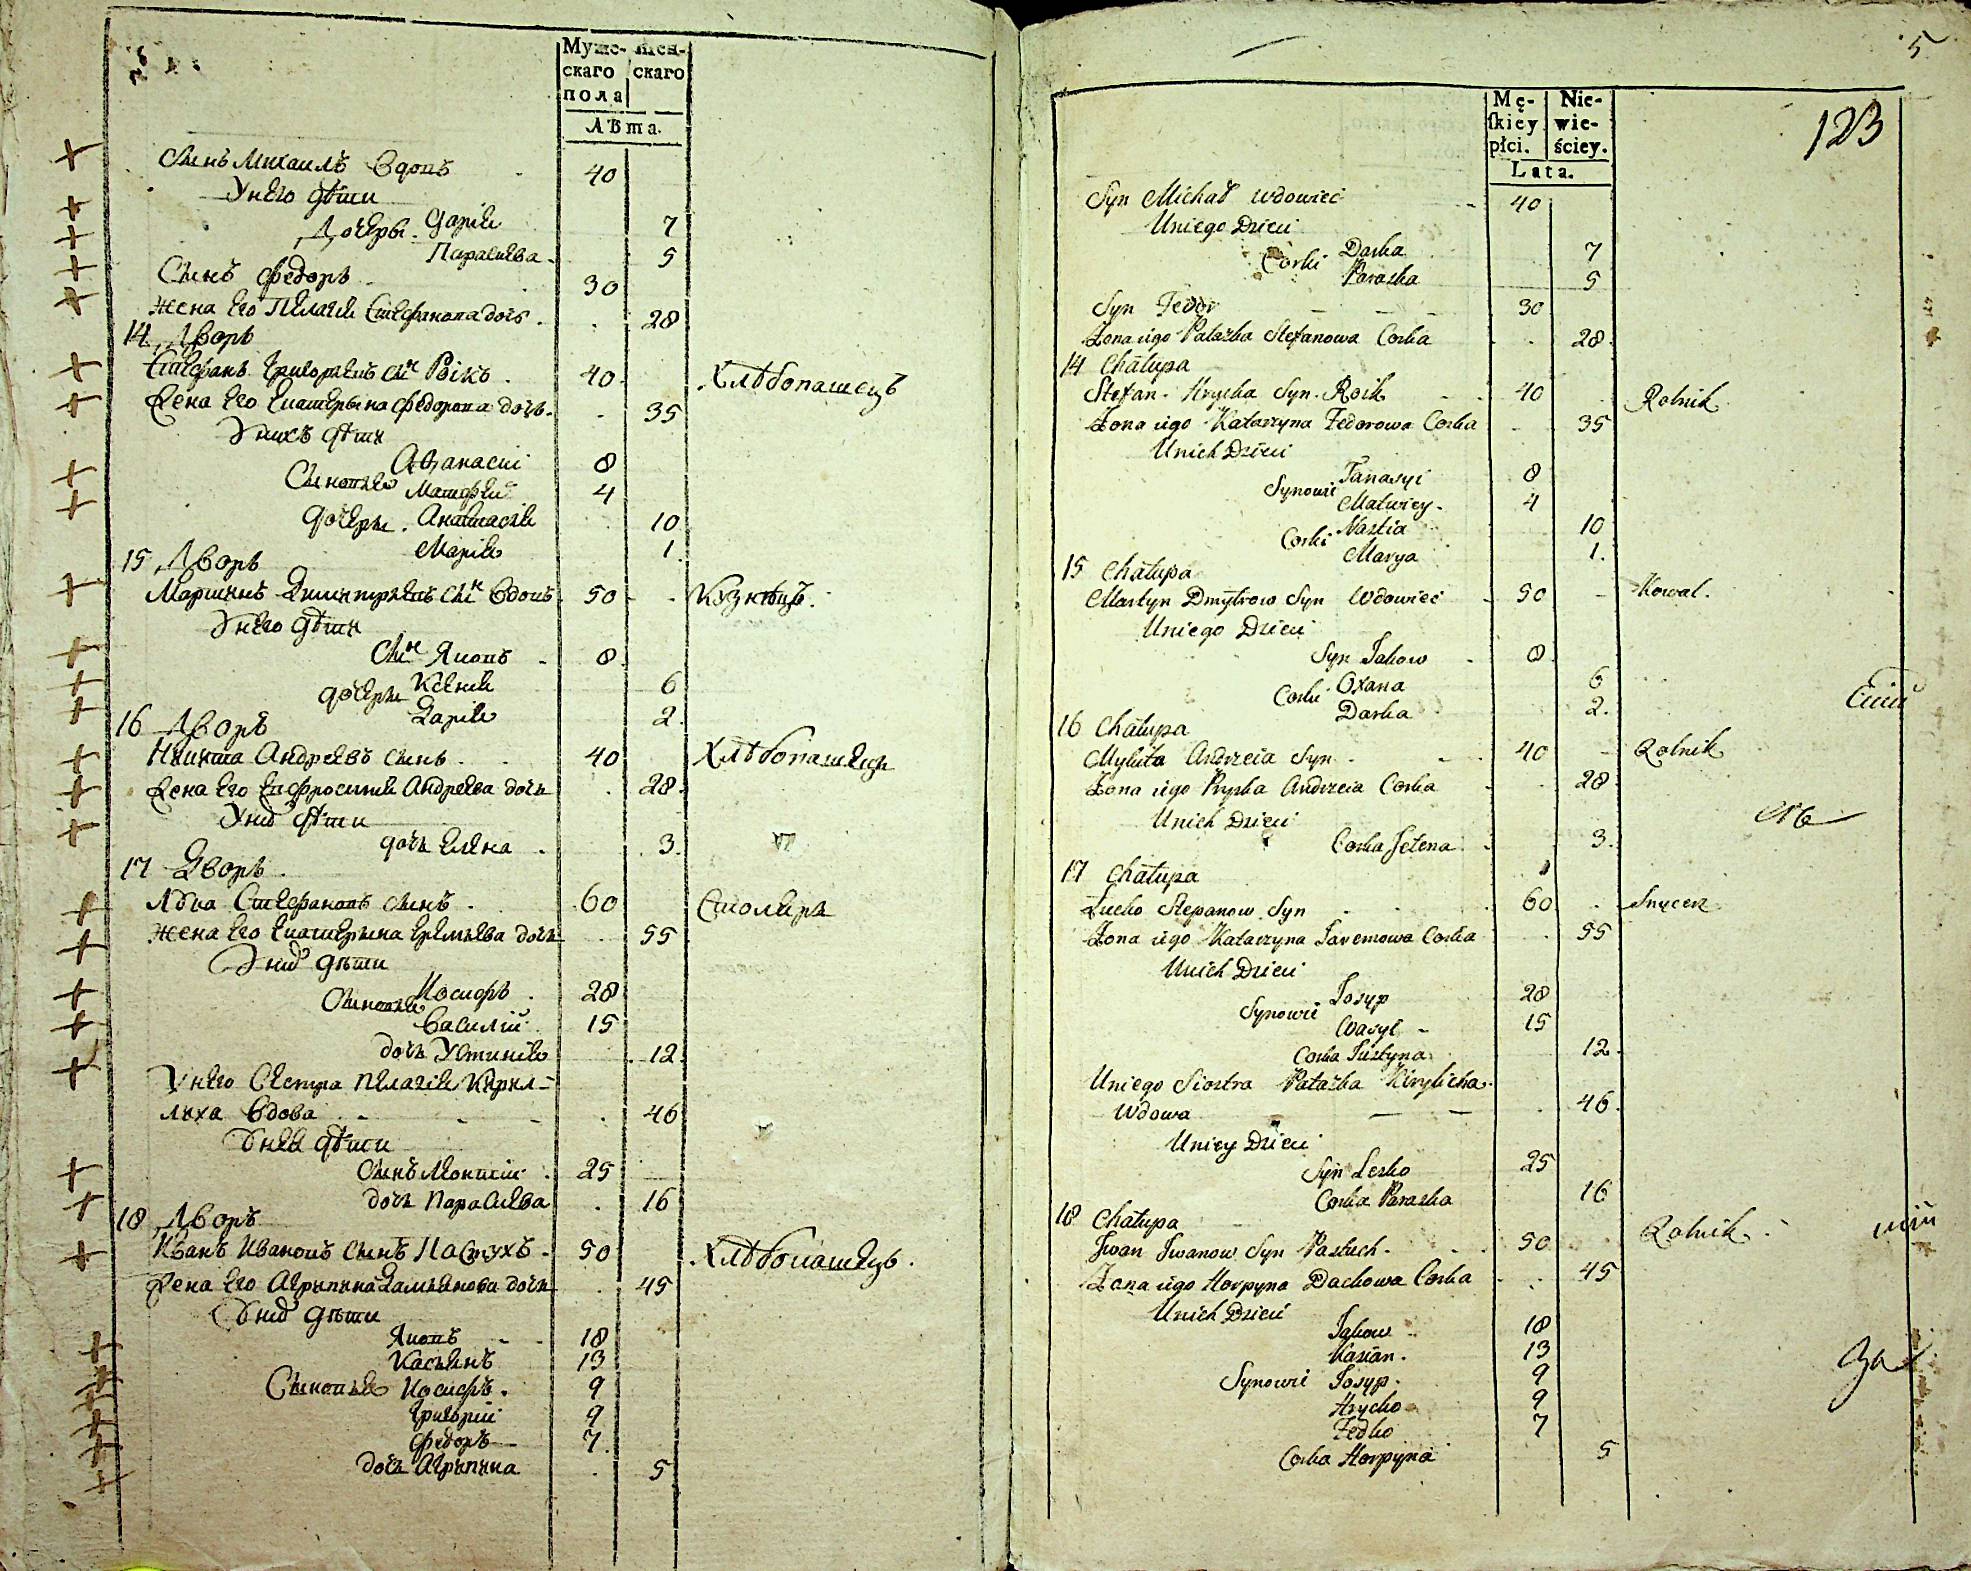 Муже- Жен-
скаго скаго
пола
Лѣта.
Сынъ Михаилъ Вдовъ 40
У него дѣти
Дочеры Дарія 7
Параскева 5
Сынъ Федоръ 30
жена его Пелагія Стефанова дочь 28
14 Дворъ
Стефанъ Григорьевъ сын Роікъ 40 Хлѣбопашецъ
Жена его Екатерына Федорова дочь 35
У нихъ дѣти
Афанасій 8
Сыновья Матфей 4
дочеры Анастасія 10
Марія 1
15 Дворъ
Мартинъ Димитріевъ сын Вдовъ 50 Кузнецъ.
У него дѣти
Сын Яковъ 8
дочеры Ксенія 6
Дарія 2
16 Дворъ
Никита Андреевъ сынъ 40 Хлѣбопашецъ
Жена его Евфросинія Андреева дочь 28
У них дѣти
дочь Елена 3
17 Дворъ
Лука Стефановъ сынъ 60 Столяръ
жена его Екатерына Еремѣева дочь 55
У них дѣти
Сыновья Іосифъ 28
Василій 15
дочь Устинія 12
У него Сестра Пелагія Кирил-
лиха Вдова 46
У нея дѣти
Сынъ Леонтій 25
дочь Параскева 16
18 Дворъ
Иванъ Ивановъ сынъ Пастухъ 50 Хлѣбопашецъ.
Жена его Агрыпына Дамьянова дочь 45
У них дѣти
Яковъ 18
Касьянъ 13
Сыновья Іосифъ 9
Григорій 9
Федоръ 7
дочь Агрыпына 5
5
123
Mę- Nie-
ſkiey wie-
płci. ściey.
Lata.
Syn Michał Wdowiec 40
Uniego Dzieci
Corki Darka 7
Paraska 5
Syn Fedor 30
Zona iego Pałażka Stefanowa Corka 28
14 Chałupa
Stefan Hrycka Syn Roik 40 Rolnik
Zona iego Katarzyna Fedorowa Corka 35
Unich Dzieci
Synowie Tanasyi 8
Matwiey 4
Corki Nastia 10
Marya 1.
15 Chałupa
Martyn Dmytrow Syn Wdowiec 50 Kowal.
Uniego Dzieci
Syn Jakow 8
Corki Oxana 6
Darka 2.
16 Chałupa
Mykita Andrzeia Syn 40 Rolnik
Zona iego Pryska Andrzeia Corka 28
Unich Dzieci
Corka Jełena 3.
17 Chałupa
Łucko Stepanow Syn 60 Snycerz
Zona iego Katarzyna Jaremowa Corka 55
Unich Dzieci
Synowie Josyp 28
Wasyl 15
Corka Justyna 12
Uniego Siostra Pałażka Kirylicha
Wdowa 46
Uniey Dzieci
Syn Lesko 25
Corka Paraska 16
18 Chałupa
Jwan Jwanow Syn Pastuch 50 Rolnik
Zona iego Horpyna Dackowa Corka 45
Unich Dzieci
Jakow 18
Kasian 13
Synowie Josyp 9
Hrycko 9
Fedko 7
Corka Horpyna 5